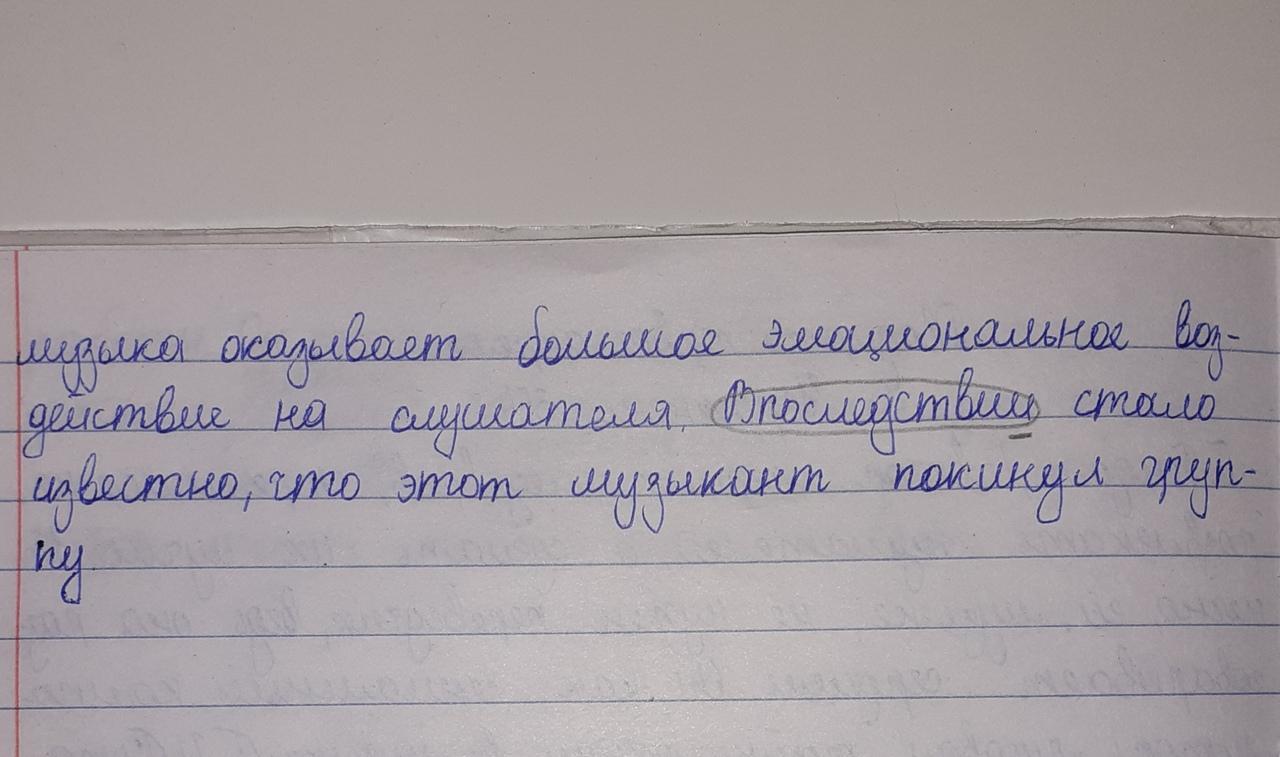 музыка оказывает большое эмоциональное воз-
действие на слушателя. Впоследствии стало
известно, что этот музыкант покинул груп-
пу